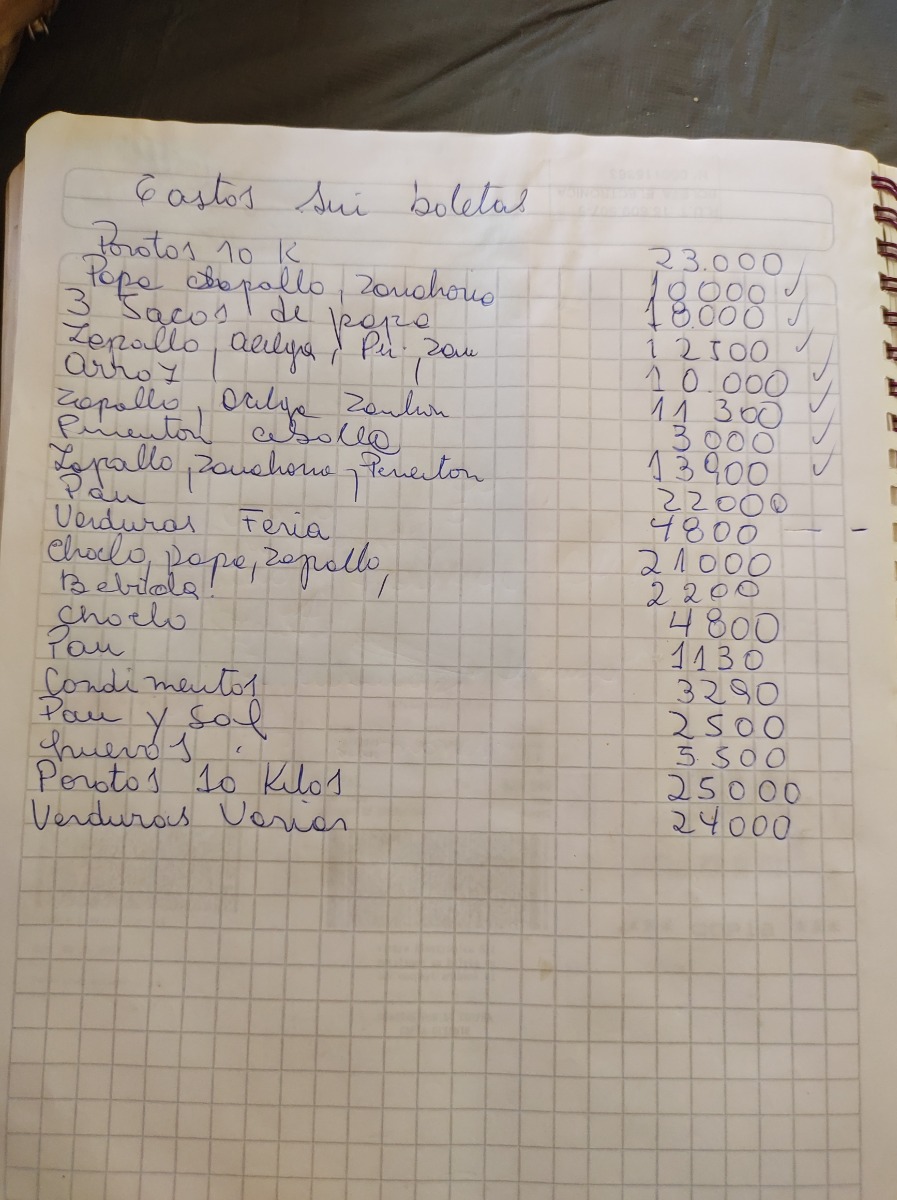 Gastos sin boletas
Porotos 10 K 23.000
Papa zapallo, zanahoria 10000 ✓
3 Sacos de papa 18.000 ✓
Zapallo, acelga, Pi. zan 12500 ✓
Arroz 10.000 ✓
Zapallo, acelga 11300 ✓
Pimenton cebolla 3000 ✓
Zapallo, zanahoria, Pimenton 13900 ✓
Pan 22000
Verduras Feria 4800 — -
Choclo, papa, zapallo, 21000
Bebida 2200
Choclo 4800
Pan 1130
Condimentos 3290
Pan y sal 2500
huevos 5.500
Porotos 10 Kilos 25000
Verduras Varias 24000